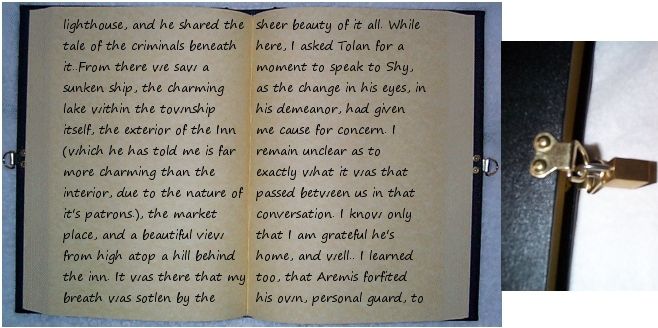 lighthouse, and he shared the
tale of the criminals beneath
it..From there we saw a
sunken ship, the charming
lake within the township
itself, the exterior of the Inn
(which he has told me is far
more charming than the
interior, due to the nature of
it's patrons.), the market
place, and a beautiful view
from high atop a hill behind
the inn. It was there that my
breath was sotlen by the
sheer beauty of it all. While
here, I asked Tolan for a
moment to speak to Shy,
as the change in his eyes, in
his demeanor, had given
me cause for concern. I
remain unclear as to
exactly what it was that
passed between us in that
conversation. I know only
that I am grateful he's
home, and well.. I learned
too, that Aremis forfited
his own, personal guard, to